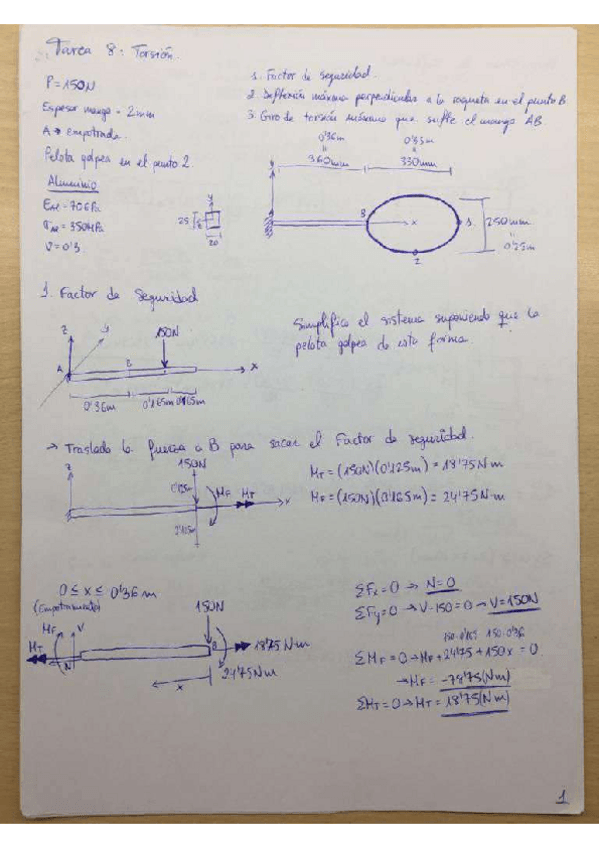 Tarea 8: Torsión.
P = 150N
Espesor mango = 2mm
A → Empotrada.
Pelota golpea en el punto 2.
Aluminio
E_Al = 70GPa
σ_Al = 350MPa
ν = 0'3
1. Factor de seguridad.
2. Deflexión máxima perpendicular a la raqueta en el punto B
3. Giro de torsión máximo que sufre el mango AB
0'36m 0'33m
360mm 330mm
25 20
y
B x 1 2
250mm
0'25m
1. Factor de Seguridad
Simplifico el sistema suponiendo que la
pelota golpea de esta forma.
z y 150N
A B x
0'36m 0'165m 0'165m
→ Traslado la fuerza a B para sacar el Factor de seguridad.
z 150N
0'125m
M_F M_T x
M_T = (150N)(0'125m) = 18'75Nm
M_F = (150N)(0'165m) = 24'75N·m
0 ≤ x ≤ 0'36m
(Empotramiento)
M_F V 150N
M_T N B 18'75Nm
x 24'75Nm
ΣF_x = 0 → N = 0
ΣF_y = 0 → V - 150 = 0 → V = 150N
150·0'165 150·0'36
ΣM_F = 0 → M_F + 24'75 + 150x = 0
→ M_F = -78'75(Nm)
ΣM_T = 0 → M_T = 18'75(Nm)
1